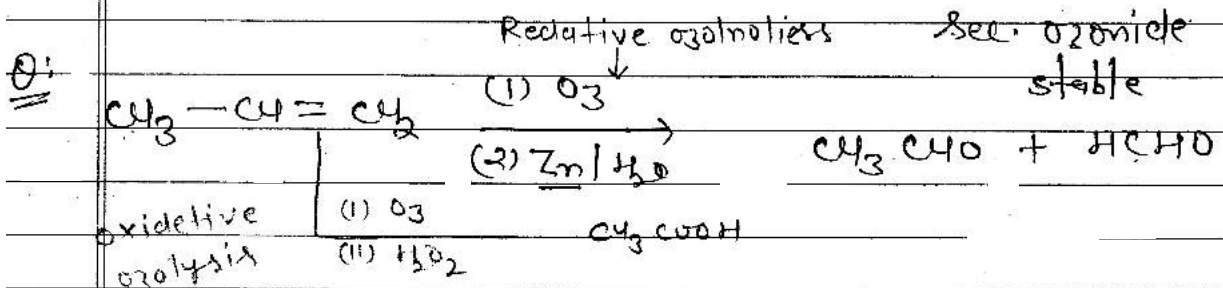 Redative ozolnoliess Sec. ozonide
Q: stable
CH3 — CH = CH2 (1) O3
(2) Zn / H2O CH3 CHO + HCHO
oxidetive (i) O3
ozolysis (ii) H2O2 CH3 COOH